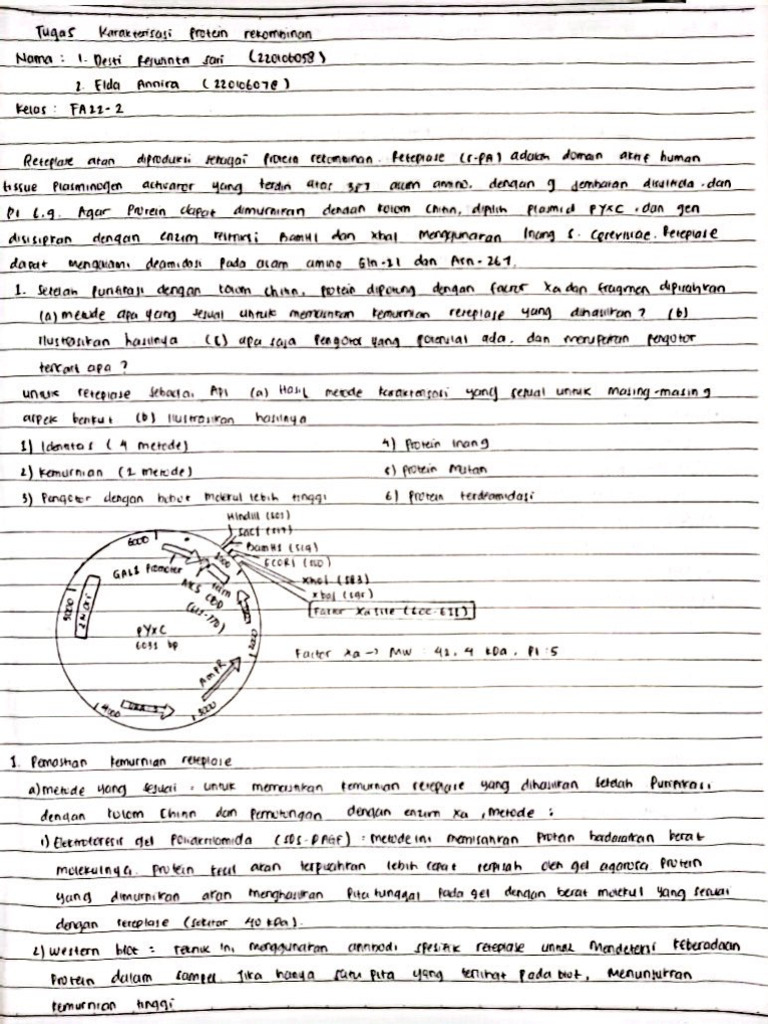 Tugas Karakterisasi Protein rekombinan
Nama : 1. Desti Sari (220106058)
2. Elda Annira (220106078)
Kelas : FA22-2
Reteplase akan diproduksi sebagai Protein rekombinan. Reteplase (r-PA) adalah domain aktif human
tissue Plasminogen activator yang terdiri atas 357 asam amino. dengan 9 jembatan disulfida. dan
PI 6.9. Agar Protein dapat dimurnikan dengan kolom Chitin, dipilih plasmid pYXC. dan gen
disisipkan dengan enzim restriksi BamH1 dan xba1 menggunakan Inang S. Cerevisiae. Reteplase
dapat mengalami deamidasi Pada asam amino Gln-21 dan Asn-267.
1. Setelah Purifikasi dengan kolom Chitin, Protein dipotong dengan factor Xa dan fragmen dipisahkan
(a) metode apa yang sesuai untuk memastikan kemurnian reteplase yang dihasilkan ? (b)
Ilustrasikan hasilnya (c) apa saja Pengotor yang potensial ada. dan merupakan pengotor
terkait apa ?
untuk reteplase sebagai API (a) Hasil metode karakterisasi yang sesuai untuk masing-masing
aspek berikut (b) Ilustrasikan hasilnya
1) Identitas (4 metode) 4) Protein Inang
2) Kemurnian (2 metode) 5) Protein Mutan
3) Pengotor dengan bobot molekul lebih tinggi 6) Protein terdeamidasi
HindIII (503)
SacI
BamH1
ECOR1
Xho1
Xba1
Factor Xa site
6000
5000
4000
3000
GAL1 Promoter
2μ ori
pYXC
AmpR
Factor Xa → MW : 42,4 kDa. PI : 5
1. Pemastian kemurnian reteplase
a) metode yang sesuai, untuk memastikan kemurnian reteplase yang dihasilkan setelah Purifikasi
dengan kolom Chitin dan Pemotongan dengan enzim Xa, metode :
1) Elektroforesis gel Poliakrilamida (SDS-PAGE) : metode ini memisahkan Protein berdasarkan berat
molekulnya. Protein kecil akan terpisahkan lebih cepat terpisah oleh gel agarosa Protein
yang dimurnikan akan menghasilkan Pita tunggal Pada gel dengan berat molekul yang sesuai
dengan reteplase (sekitar 40 kDa).
2) Western blot : teknik ini menggunakan antibodi spesifik reteplase untuk Mendeteksi keberadaan
Protein dalam sampel. Jika hanya satu Pita yang terlihat Pada blot, Menunjukkan
kemurnian tinggi